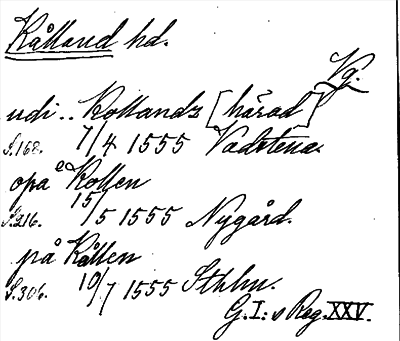 Kålland hd.
Vg.
udi .. Kollandz [härad]
S.168. 7/4 1555 Vadstena.
opå Kollen
S.216. 15/5 1555 Nygård.
på Kållen
S.306. 10/7 1555 Sthlm.
G.I:s Reg. XXV.